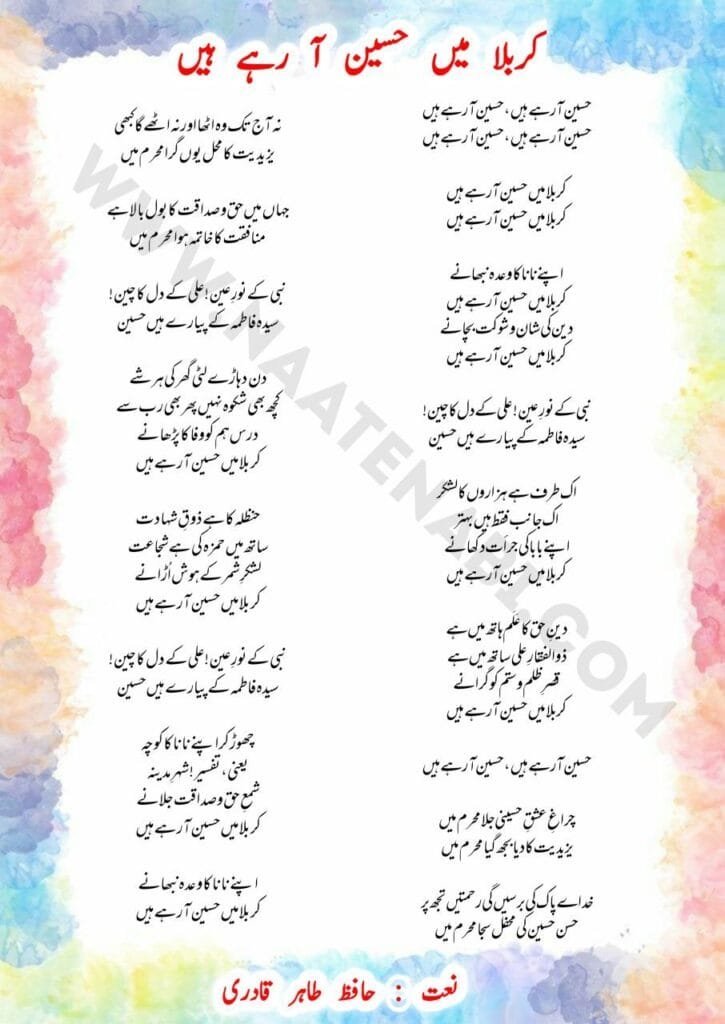 کربلا میں حسین آ رہے ہیں
حسین آ رہے ہیں، حسین آ رہے ہیں
حسین آ رہے ہیں، حسین آ رہے ہیں
کربلا میں حسین آ رہے ہیں
کربلا میں حسین آ رہے ہیں
اپنے نانا کا وعدہ نبھانے
کربلا میں حسین آ رہے ہیں
دین کی شان و شوکت بچانے
کربلا میں حسین آ رہے ہیں
نبی کے نورِ عین! علی کے دل کا چین!
سیدہ فاطمہ کے پیارے ہیں حسین
اک طرف ہے ہزاروں کا لشکر
اک جانب فقط ہیں بہتر
اپنے بابا کی جرأت دکھانے
کربلا میں حسین آ رہے ہیں
دینِ حق کا عَلَم ہاتھ میں ہے
ذوالفقارِ علی ساتھ میں ہے
قصرِ ظلم و ستم کو گرانے
کربلا میں حسین آ رہے ہیں
حسین آ رہے ہیں، حسین آ رہے ہیں
چراغِ عشقِ حسینی جلا محرم میں
یزیدیت کا دیا بجھ گیا محرم میں
خدائے پاک کی برسیں گی رحمتیں تجھ پر
حسن حسین کی محفل سجا محرم میں
نہ آج تک وہ اٹھا اور نہ اٹھے گا کبھی
یزیدیت کا محل یوں گرا محرم میں
جہاں میں حق و صداقت کا بول بالا ہے
منافقت کا خاتمہ ہوا محرم میں
نبی کے نورِ عین! علی کے دل کا چین!
سیدہ فاطمہ کے پیارے ہیں حسین
دن دہاڑے لٹی گھر کی ہر شے
کچھ بھی شکوہ نہیں پھر بھی رب سے
درس ہم کو وفا کا پڑھانے
کربلا میں حسین آ رہے ہیں
حنظلہ کا ہے ذوقِ شہادت
ساتھ میں حمزہ کی ہے شجاعت
لشکرِ شمر کے ہوش اُڑانے
کربلا میں حسین آ رہے ہیں
نبی کے نورِ عین! علی کے دل کا چین!
سیدہ فاطمہ کے پیارے ہیں حسین
چھوڑ کر اپنے نانا کا کوچہ
یعنی، تفسیر! شہرِ مدینہ
شمعِ حق و صداقت جلانے
کربلا میں حسین آ رہے ہیں
اپنے نانا کا وعدہ نبھانے
کربلا میں حسین آ رہے ہیں
نعت : حافظ طاہر قادری
WWW.NAATENABI.COM